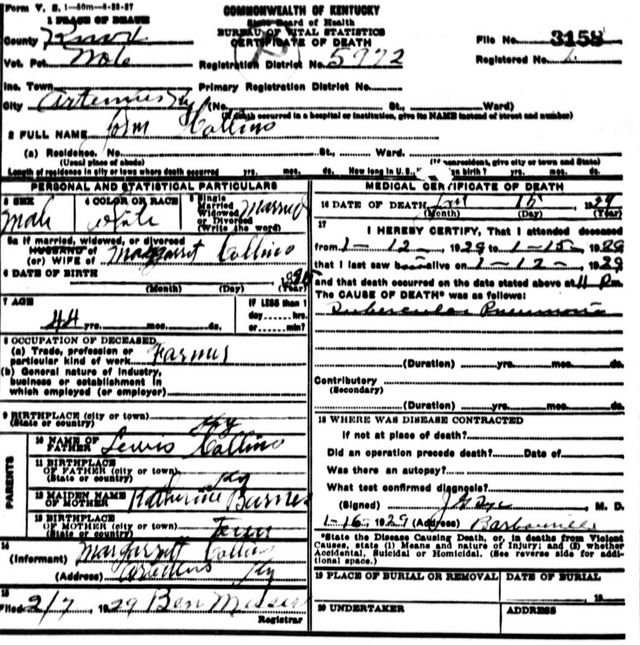 Form V. S. 1-50m-8-23-27
COMMONWEALTH OF KENTUCKY
State Board of Health
BUREAU OF VITAL STATISTICS
CERTIFICATE OF DEATH
1 PLACE OF DEATH
County Knox
File No. 3158
Vot. Pct.
Registration District No. 5972
Registered No.
Inc. Town
Primary Registration District No.
City Artemus Ky (No. St., Ward)
(If death occurred in a hospital or institution, give its NAME instead of street and number)
2 FULL NAME John Collins
(a) Residence. No. St., Ward.
(Usual place of abode) (If nonresident, give city or town and State)
Length of residence in city or town where death occurred yrs. mos. ds. How long in U.S., if of foreign birth? yrs. mos. ds.
PERSONAL AND STATISTICAL PARTICULARS
3 SEX
Male
4 COLOR OR RACE
White
5 Single
Married
Widowed
or Divorced
(Write the word)
Married
5a If married, widowed, or divorced
HUSBAND of
(or) WIFE of Margarett Collins
6 DATE OF BIRTH
(Month) (Day) (Year)
7 AGE
44 yrs. mos. ds.
IF LESS than 1
day hrs.
or min?
8 OCCUPATION OF DECEASED
(a) Trade, profession or
particular kind of work Farmer
(b) General nature of industry,
business or establishment in
which employed (or employer)
9 BIRTHPLACE (city or town)
(State or country) Ky
PARENTS
10 NAME OF
FATHER Lewis Collins
11 BIRTHPLACE
OF FATHER (city or town)
(State or country) Ky
12 MAIDEN NAME
OF MOTHER Katherine Barnes
13 BIRTHPLACE
OF MOTHER (city or town)
(State or country) Tenn
14
(Informant) Margarett Collins
(Address) Artemus Ky
15
Filed 2/7, 1929 Ben Messer
Registrar
MEDICAL CERTIFICATE OF DEATH
16 DATE OF DEATH Jan 15 1929
(Month) (Day) (Year)
17
I HEREBY CERTIFY, That I attended deceased
from 1-12-, 1929 to 1-15-, 1929
that I last saw alive on 1-12-, 1929
and that death occurred on the date stated above at 11 Pm.
The CAUSE OF DEATH* was as follows:
Tubercular Pneumonia
(Duration) yrs. mos. ds.
Contributory
(Secondary)
(Duration) yrs. mos. ds.
18 WHERE WAS DISEASE CONTRACTED
If not at place of death?
Did an operation precede death? Date of
Was there an autopsy?
What test confirmed diagnosis?
(Signed) M. D.
1-16-, 1929 (Address) Barbourville
*State the Disease Causing Death, or, in deaths from Violent
Causes, state (1) Means and nature of Injury; and (2) whether
Accidental, Suicidal or Homicidal. (See reverse side for addi-
tional space.)
19 PLACE OF BURIAL OR REMOVAL
DATE OF BURIAL
19
20 UNDERTAKER
ADDRESS